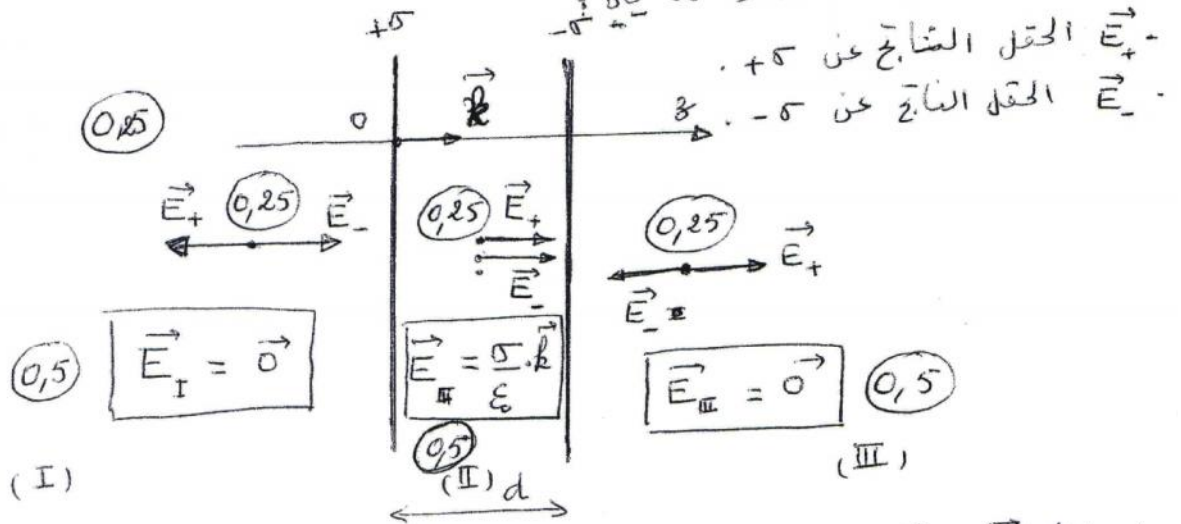 +σ
-σ
. \vec{E}_+ الحقل الناتج عن +σ .
. \vec{E}_- الحقل الناتج عن -σ .
0,25
0
\vec{k}
z
\vec{E}_+ 0,25 \vec{E}_-
0,25 \vec{E}_+
\vec{E}_-
0,25
\vec{E}_+
\vec{E}_-
0,5 \vec{E}_I = \vec{0}
\vec{E}_{II} = \frac{σ}{ε_0} . \vec{k}
0,5
\vec{E}_{III} = \vec{0} 0,5
(I)
(II) d
(III)